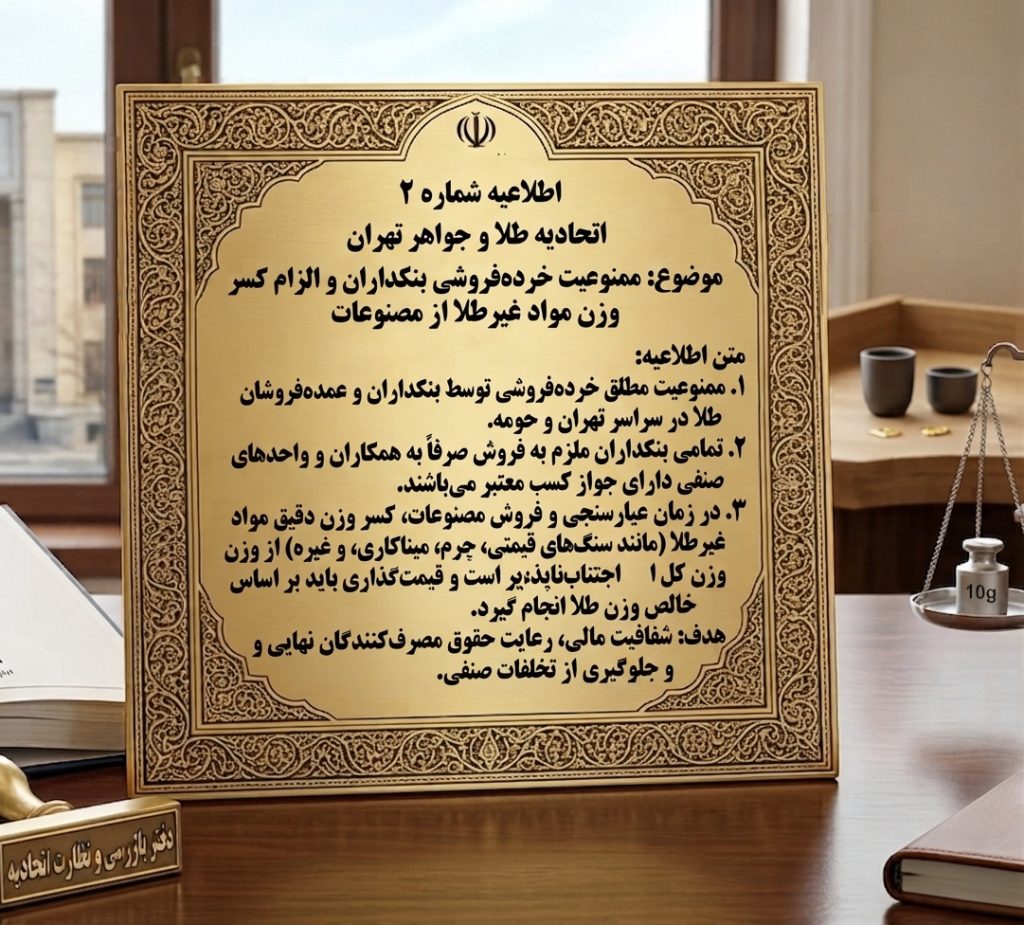 اطلاعیه شماره ۲
اتحادیه طلا و جواهر تهران
موضوع: ممنوعیت خرده‌فروشی بنکداران و الزام کسر
وزن مواد غیرطلا از مصنوعات
متن اطلاعیه:
۱. ممنوعیت مطلق خرده‌فروشی توسط بنکداران و عمده‌فروشان
طلا در سراسر تهران و حومه.
۲. تمامی بنکداران ملزم به فروش صرفاً به همکاران و واحدهای
صنفی دارای جواز کسب معتبر می‌باشند.
۳. در زمان عیارسنجی و فروش مصنوعات، کسر وزن دقیق مواد
غیرطلا (مانند سنگ‌های قیمتی، چرم، میناکاری، و غیره) از وزن
وزن کل ا اجتناب‌ناپذیر است و قیمت‌گذاری باید بر اساس
خالص وزن طلا انجام گیرد.
هدف: شفافیت مالی، رعایت حقوق مصرف‌کنندگان نهایی و
و جلوگیری از تخلفات صنفی.
10g
دفتر بازرسی و نظارت اتحادیه